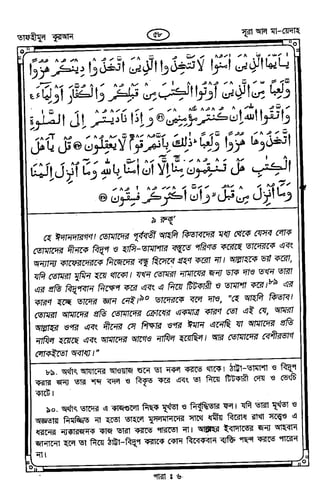 তাফহীমুল কুরআন
৫৮
সূরা আল মা-য়েদাহ
يٰۤاَيُّهَا الَّذِيْنَ اٰمَنُوْا لَا تَتَّخِذُوا الَّذِيْنَ اتَّخَذُوْا دِيْنَكُمْ هُزُوًا
وَّلَعِبًا مِّنَ الَّذِيْنَ اُوْتُوا الْكِتٰبَ مِنْ قَبْلِكُمْ وَالْكُفَّارَ اَوْلِيَآءَ ۚ
وَاتَّقُوا اللّٰهَ اِنْ كُنْتُمْ مُّؤْمِنِيْنَ ۞ وَاِذَا نَادَيْتُمْ اِلَى الصَّلٰوةِ
اتَّخَذُوْهَا هُزُوًا وَّلَعِبًا ؕ ذٰلِكَ بِاَنَّهُمْ قَوْمٌ لَّا يَعْقِلُوْنَ ۞ قُلْ يٰۤاَهْلَ
الْكِتٰبِ هَلْ تَنْقِمُوْنَ مِنَّاۤ اِلَّاۤ اَنْ اٰمَنَّا بِاللّٰهِ وَمَاۤ اُنْزِلَ اِلَيْنَا
وَمَاۤ اُنْزِلَ مِنْ قَبْلُ ۙ وَاَنَّ اَكْثَرَكُمْ فٰسِقُوْنَ ۞
৯ রুকূ'
হে ঈমানদারগণ! তোমাদের পূর্ববর্তী আহলি কিতাবদের মধ্য থেকে যেসব লোক
তোমাদের দীনকে বিদ্রূপ ও হাসি-তামাশার বস্তুতে পরিণত করেছে তাদেরকে এবং
অন্যান্য কাফেরদেরকে নিজেদের বন্ধু হিসেবে গ্রহণ করো না। আল্লাহকে ভয় করো,
যদি তোমরা মুমিন হয়ে থাকো। যখন তোমরা নামাযের জন্য ডাক দাও তখন তারা
এর প্রতি বিদ্রূপবান নিক্ষেপ করে এবং এ নিয়ে টিটকারী ও তামাশা করে।৮৯ এর
কারণ হচ্ছে তাদের জ্ঞান নেই।৯০ তাদেরকে বলে দাও, "হে আহলি কিতাব!
তোমরা আমাদের প্রতি তোমাদের ক্রোধের একমাত্র কারণ তো এই যে, আমরা
আল্লাহর ওপর এবং দীনের সে শিক্ষার ওপর ঈমান এনেছি যা আমাদের প্রতি
নাযিল হয়েছে এবং আমাদের আগেও নাযিল হয়েছিল। আর তোমাদের বেশীরভাগ
লোকইতো অবাধ্য।"
৮৯. অর্থাৎ আযানের আওয়াজ শুনে তা নকল করতে থাকে। ঠাট্টা-তামাশা ও বিদ্রূপ
করার জন্য তার শব্দ বদল ও বিকৃত করে এবং তা নিয়ে টিটকারী দেয় ও ভেংচি
কাটে।
৯০. অর্থাৎ তাদের এ কাজগুলো নিছক মূর্খতা ও নির্বুদ্ধিতার ফল। যদি তারা মূর্খতা ও
অজ্ঞতায় নিমজ্জিত না হতো তাহলে মুসলমানদের সাথে ধর্মীয় বিরোধ রাখা সত্ত্বেও এ
ধরনের ন্যক্কারজনক কাজ তারা করতে পারতো না। আল্লাহর ইবাদাতের জন্য আহবান
জানানো হলে তা নিয়ে ঠাট্টা-বিদ্রূপ করাকে কোন বিবেকবান ব্যক্তি পছন্দ করতে পারেন
না।
পারা : ৬